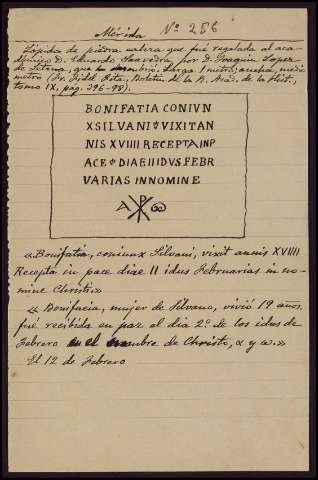 Mérida Nº 286
Lápida de piedra caliza que fué regalada al aca-
démico D. Eduardo Saavedra por D. Joaquin Lopez
de Letona, que la descubrió. Largo 1 metro; ancho, medio
metro (Sr. Fidel Fita, Boletín de la R. Acad. de la Hist.,
tomo IX, pág. 396-98).
BONIFATIA CONIVN
XSILVANI VIXITAN
NIS XVIIII RECEPTA INP
ACE DIAE IIIDVS FEBR
VARIAS IN NOMINE
A ω
«Bonifatia, coniunx Silvani, vixit annis XVIIII
Recepta in pace diae II idus Februarias in no-
mine Christi.»
«Bonifacia, mujer de Silvano, vivió 19 años,
fué recibida en paz el dia 2º de los idus de
Febrero en el nombre de Christo, α y ω.»
El 12 de Febrero